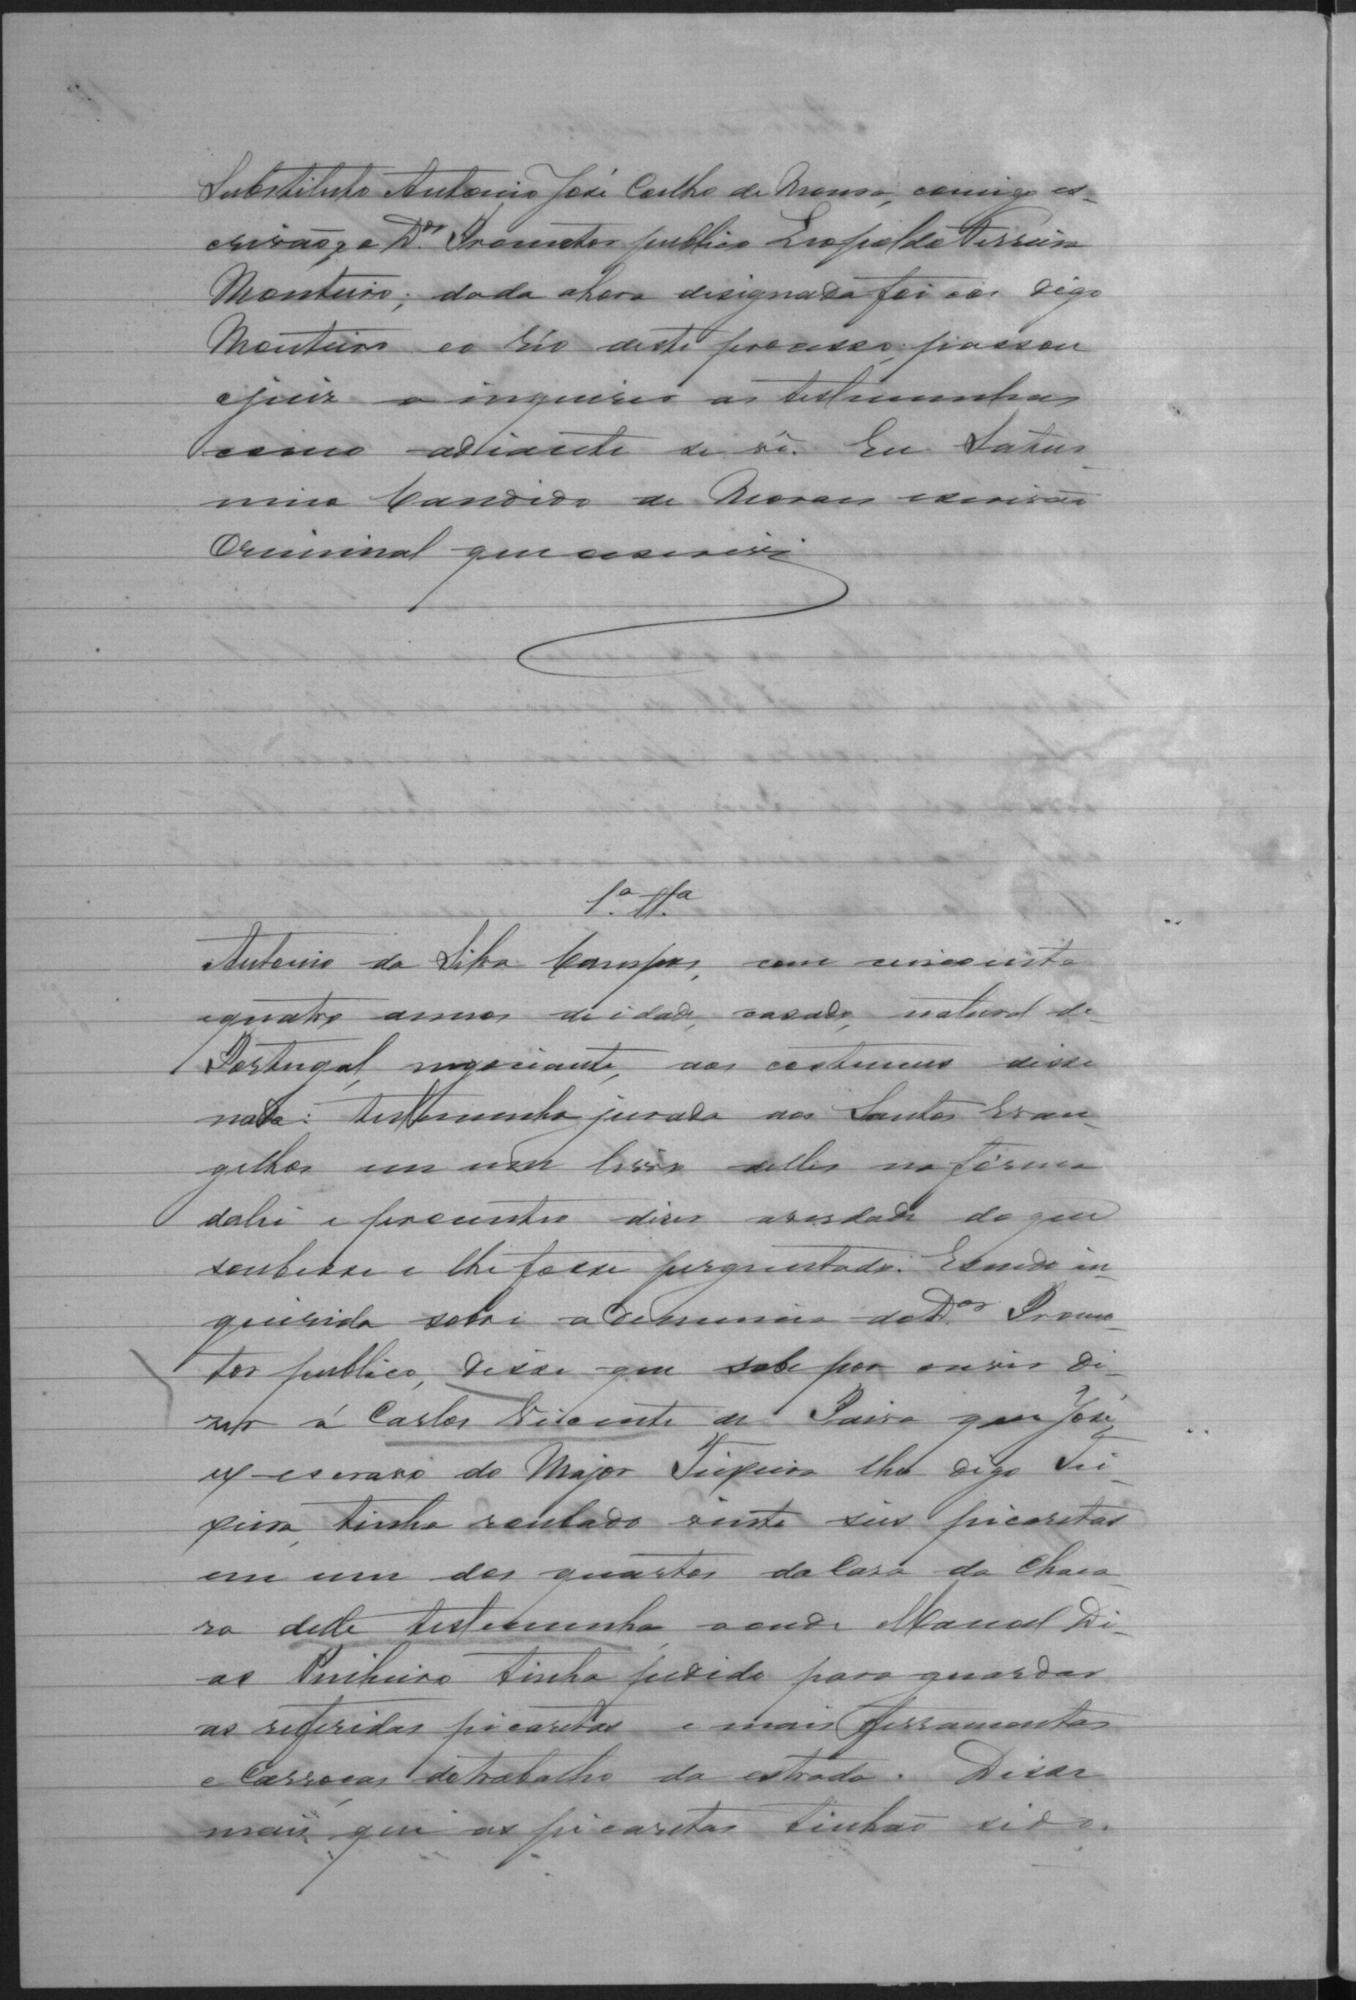 Substituto Antonio José Coelho de Moura, comigo es-
crivão, e Dor. Promotor publico Leopoldo Ferreira
Monteiro; dada a hora designada foi digo
Monteiro eo réo deste processo, passou
o juiz a inquirir as testemunhas
como adiante se vê. Eu Satur-
nino Candido de Moraes escrivão
Criminal que escrevi
1.a T.a
Antonio da Silva Campos, com cincoenta
equatro annos de idade, casado, natural de
Portugal, negociante, aos costumes disse
nada: testemunha jurada aos Santos Evan-
gelhos em um livro delles na fórma
da lei e prometteu dizer averdade do que
soubesse e lhe fosse perguntado. E sendo in-
quirida sobre a denuncia do Dor. Promo-
tor publico, disse que sabe por ouvir di-
zer á Carlos Vicente de Paiva que José
ex-escravo do Major Teixeira lha digo Tei-
xeira, tinha roubado vinte seis picaretas
em um dos quartos da Casa da Chaca-
ra delle testemunha aonde Manoel Di-
as Pinheiro tinha pedido para guardar
as referidas picaretas e mais ferramentas
e Carroças do trabalho da estrada. Disse
mais que as picaretas tinhão sido